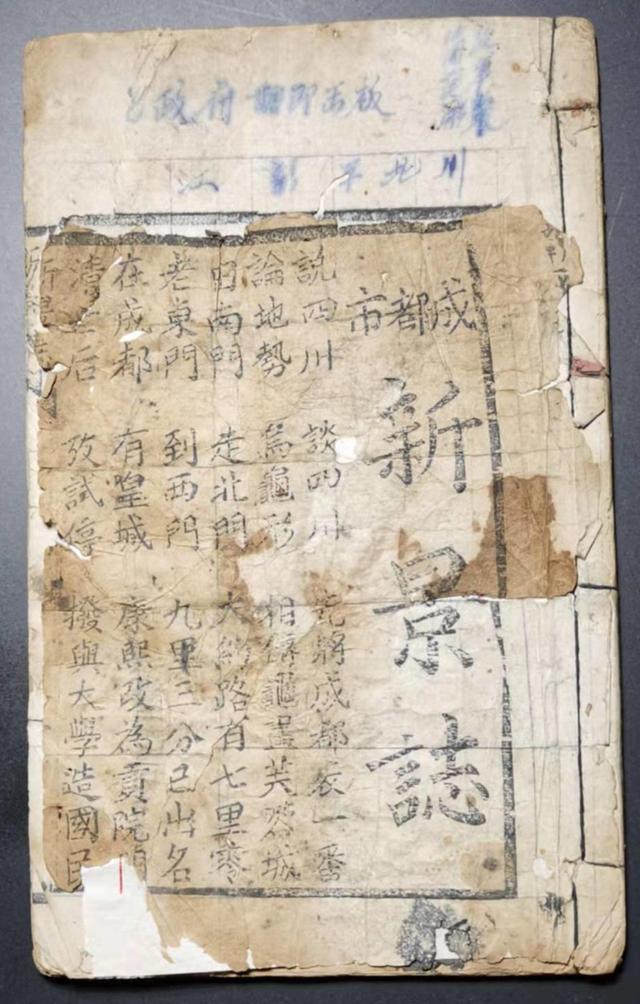 政府翻印出板
成都市
新景誌
說四川 談四川 先將成都表一番
論地勢 為龜形 相傳龜畫芙蓉城
南門 走北門 大約路有七里零
老東門 到西門 九里三分已出名
在成都 有皇城 康熙改為貢院門
清 后 攷試停 撥與大學造國民